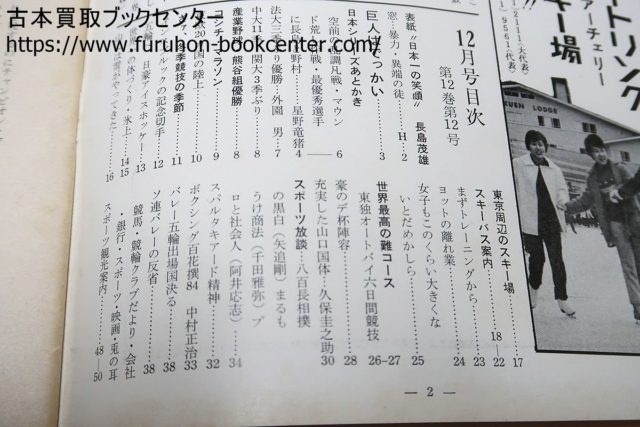 古本買取ブックセンター
https://www.furuhon-bookcenter.com/
12月号目次
第12巻第12号
表紙〃日本一の笑顔〃 長島茂雄
窓・暴力・異端の徒……H…2
巨人はでっかい……3
日本シリーズあとかき
空前の絶調凡戦・マウン
ド荒し作戦・最優秀選手
に長島、野村……星野竜猪 4
法大三季ぶり優勝…外園 男…7
中大11季関大3季ぶり……8
産業野球熊谷組優勝……8
コシチ・マラソン……9
20ヵ国の陸上……10
冬季競技の季節……11
の記念切手……12
日豪アイスホッケー……13
体づくり・氷上……14
15
16
東京周辺のスキー場……17
スキーバス案内……18―22
まずトレーニングから……24
ヨットの離れ業……24
女子もこのくらい大きくな
いとだめかしら……25
世界最高の難コース
東独オートバイ六日間競技
26-27
豪のデ杯陣容……28
充実した山口国体…久保圭之助 30
スポーツ放談……八百長相撲
の黒白(矢追剛)まるも
うけ商法(千田雅弥)プ
ロと社会人(阿井応志)…34
スパルタキアード精神……32
ボクシング百花撰84 中村正治 33
バレー五輪出場国決る……38
ソ連バレーの反省……38
競馬・競輪クラブだより・会社
・銀行・スポーツ・映画・兎の耳
スポーツ観光案内……48―50
― 2 ―
スキー場
アーチェリー
LODGE